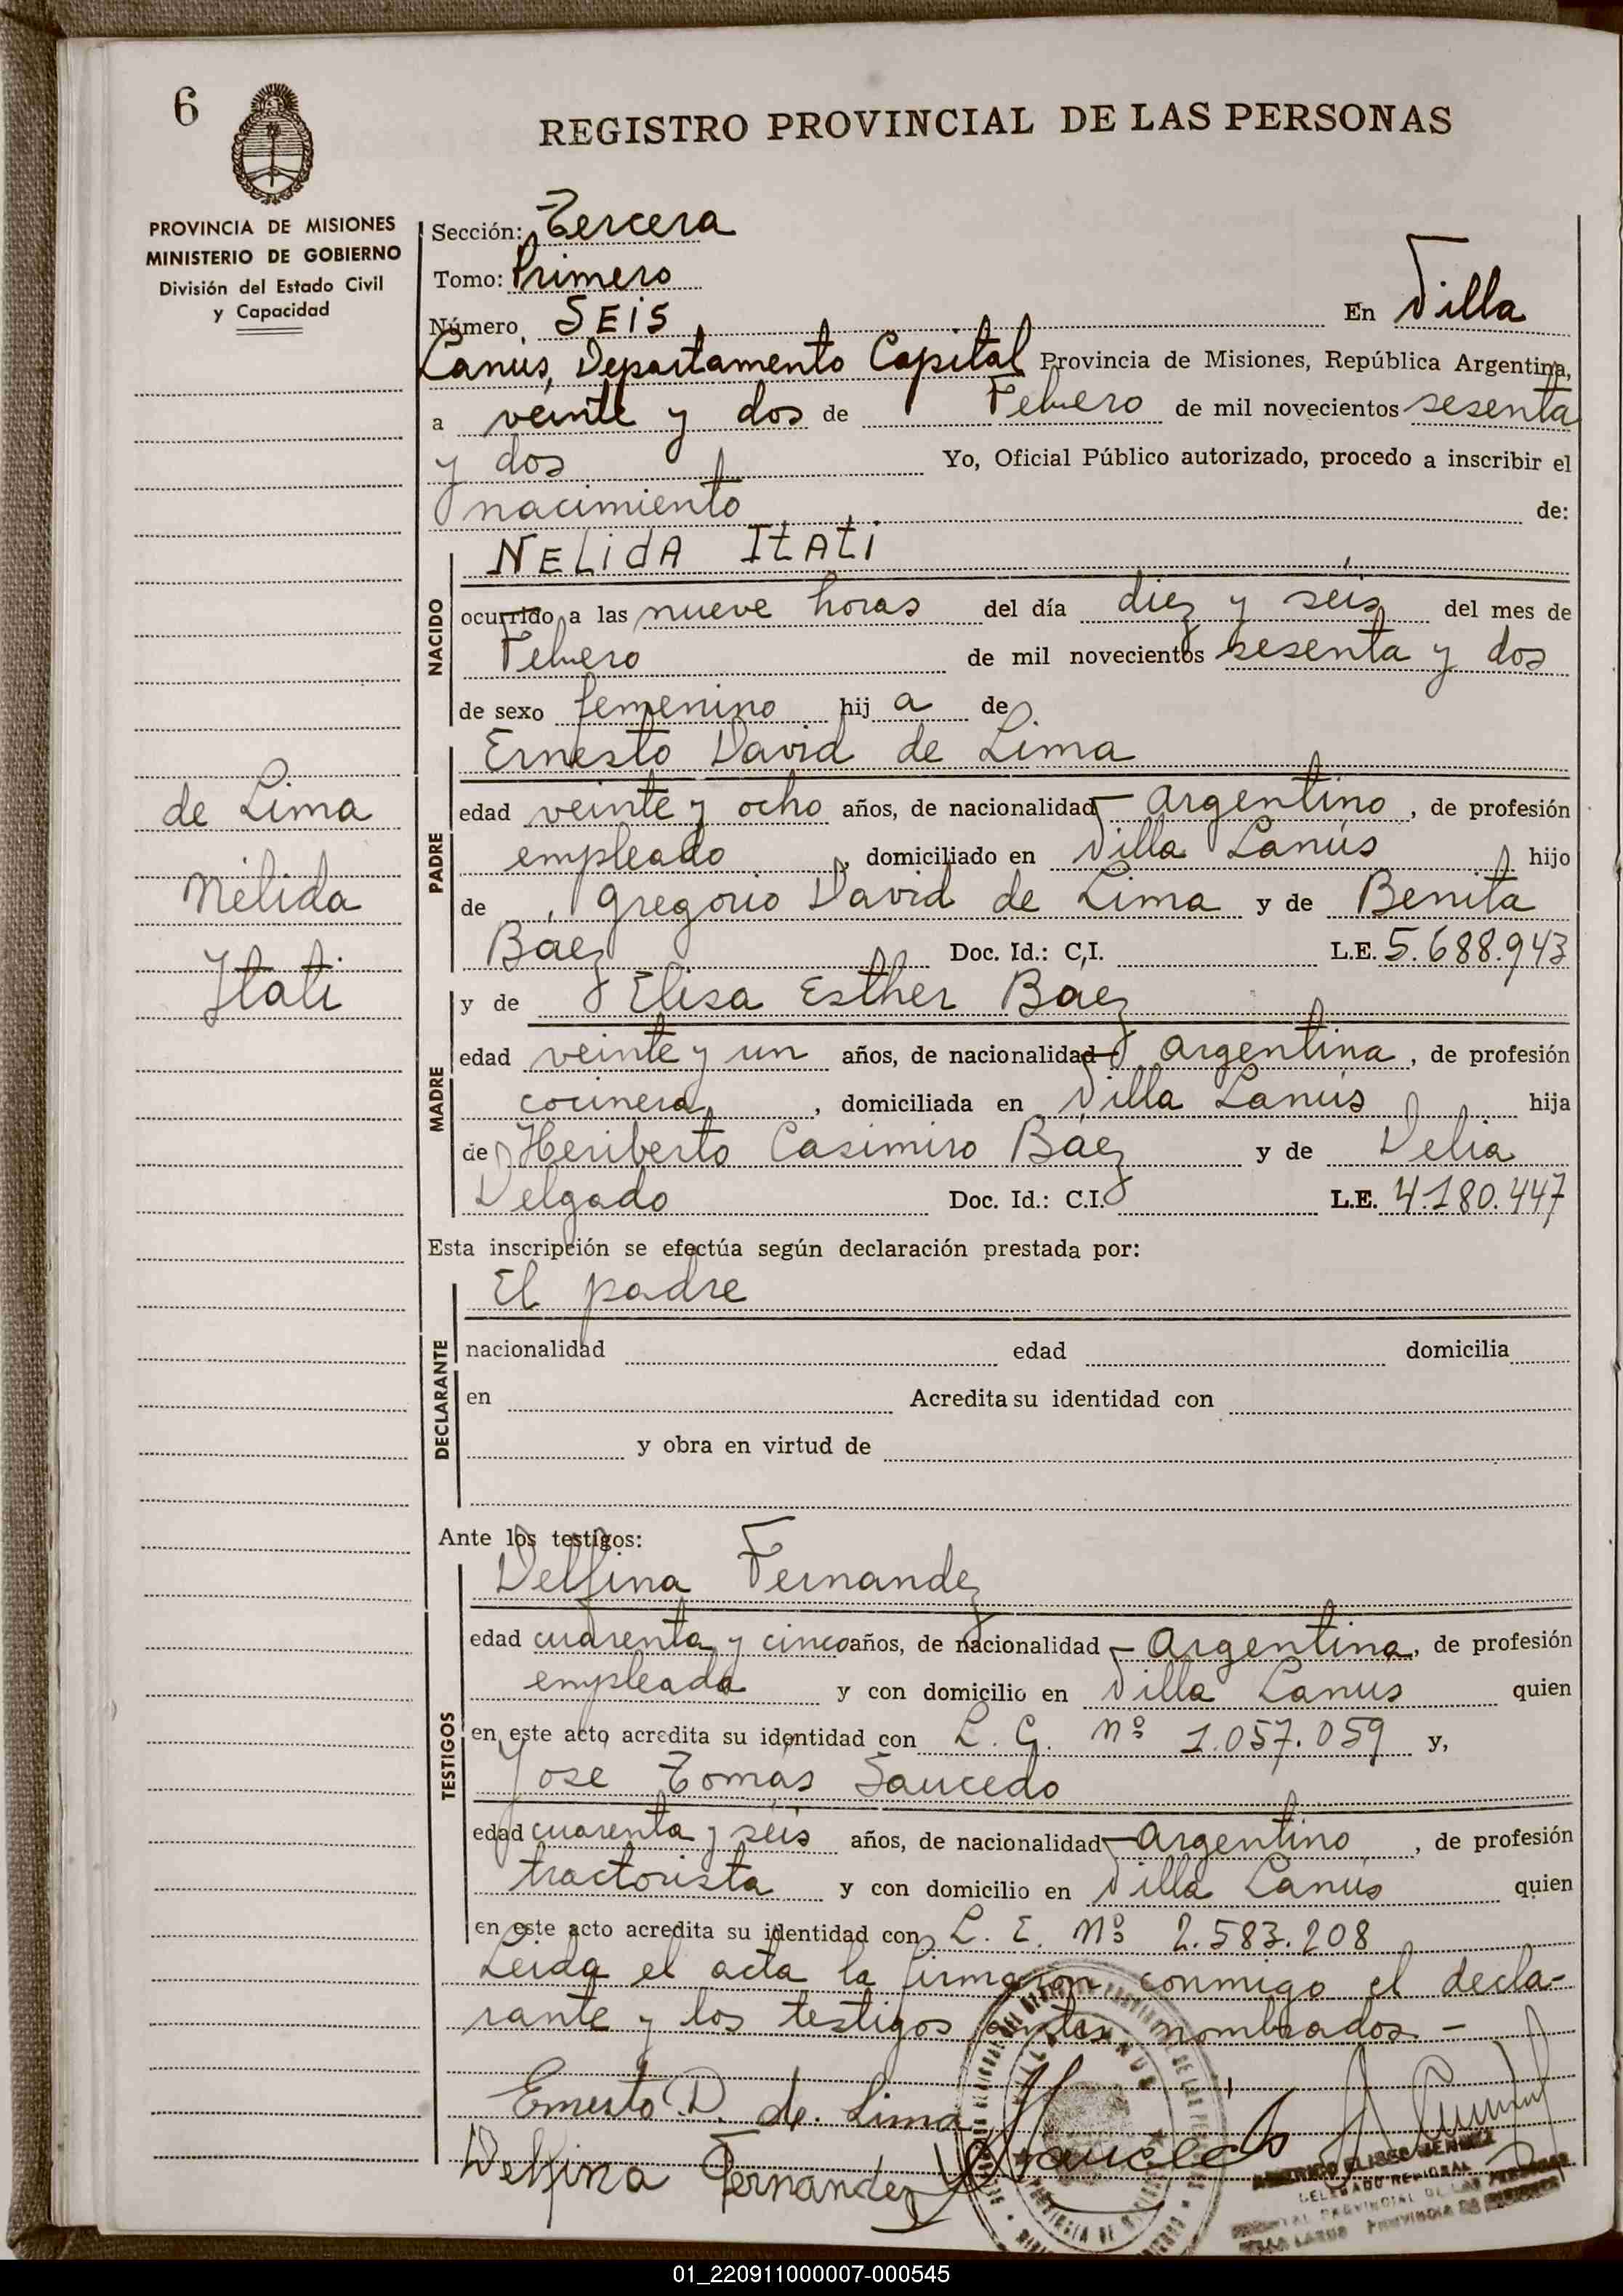 6
REGISTRO PROVINCIAL DE LAS PERSONAS
PROVINCIA DE MISIONES
MINISTERIO DE GOBIERNO
División del Estado Civil
y Capacidad
Sección: Tercera
Tomo: Primero
Número SEIS En Villa
Lanús, Departamento Capital Provincia de Misiones, República Argentina,
a veinte y dos de Febrero de mil novecientos sesenta
y dos Yo, Oficial Público autorizado, procedo a inscribir el
nacimiento de:
NACIDO
NELIDA ITATI
ocurrido a las nueve horas del día diez y seis del mes de
Febrero de mil novecientos sesenta y dos
de sexo femenino hij a de
PADRE
Ernesto David de Lima
edad veinte y ocho años, de nacionalidad argentino, de profesión
empleado, domiciliado en Villa Lanús hijo
de Gregorio David de Lima y de Benita
Baez Doc. Id.: C.I. L.E. 5.688.943
de Lima
Nélida
Itati
MADRE
y de Elisa Esther Baez
edad veinte y un años, de nacionalidad argentina, de profesión
cocinera, domiciliada en Villa Lanús hija
de Heriberto Casimiro Báez y de Delia
Delgado Doc. Id.: C.I. L.E. 4.180.447
Esta inscripción se efectúa según declaración prestada por:
DECLARANTE
El padre
nacionalidad edad domicilia
en Acredita su identidad con
y obra en virtud de
Ante los testigos:
TESTIGOS
Delfina Fernandez
edad cuarenta y cinco años, de nacionalidad argentina, de profesión
empleada y con domicilio en Villa Lanus quien
en este acto acredita su identidad con L. C. Nº 1.057.059 y,
Jose Tomás Saucedo
edad cuarenta y seis años, de nacionalidad argentino, de profesión
tractorista y con domicilio en Villa Lanús quien
en este acto acredita su identidad con L. E. Nº 2.583.208
Leida el acta la firmaron conmigo el decla-
rante y los testigos antes nombrados -
Ernesto D. de Lima
Delfina Fernandez Saucedo
ELISEO MENDEZ
DELEGADO REGIONAL
PROVINCIAL DE LAS PERSONAS
VILLA LANUS PROVINCIA DE MISIONES
01_220911000007-000545